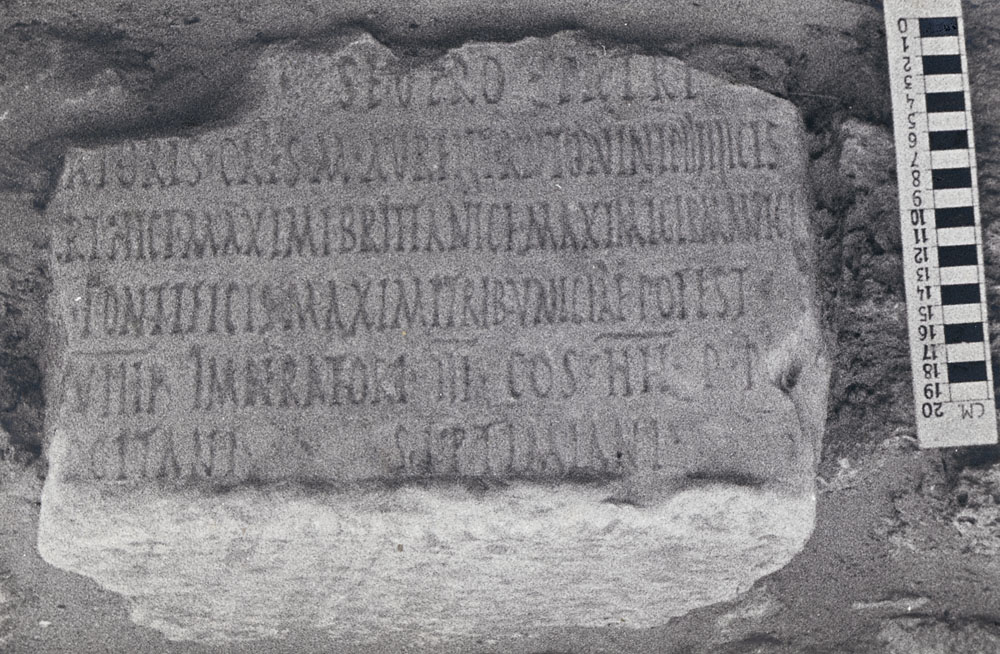 SEVERO PATRI
RATORIS CAES M AVRELI ANTONINI PII FELICIS
PARTHICI MAXIMI BRITTANICI MAXIMI GERMANICI
PONTIFICIS MAXIMI TRIBVNICIAE POTEST
VIIII IMPERATORI III COS IIII P P
CITANI SEPTIMIANI
0 1 2 3 4 5 6 7 8 9 10 11 12 13 14 15 16 17 18 19 20 CM